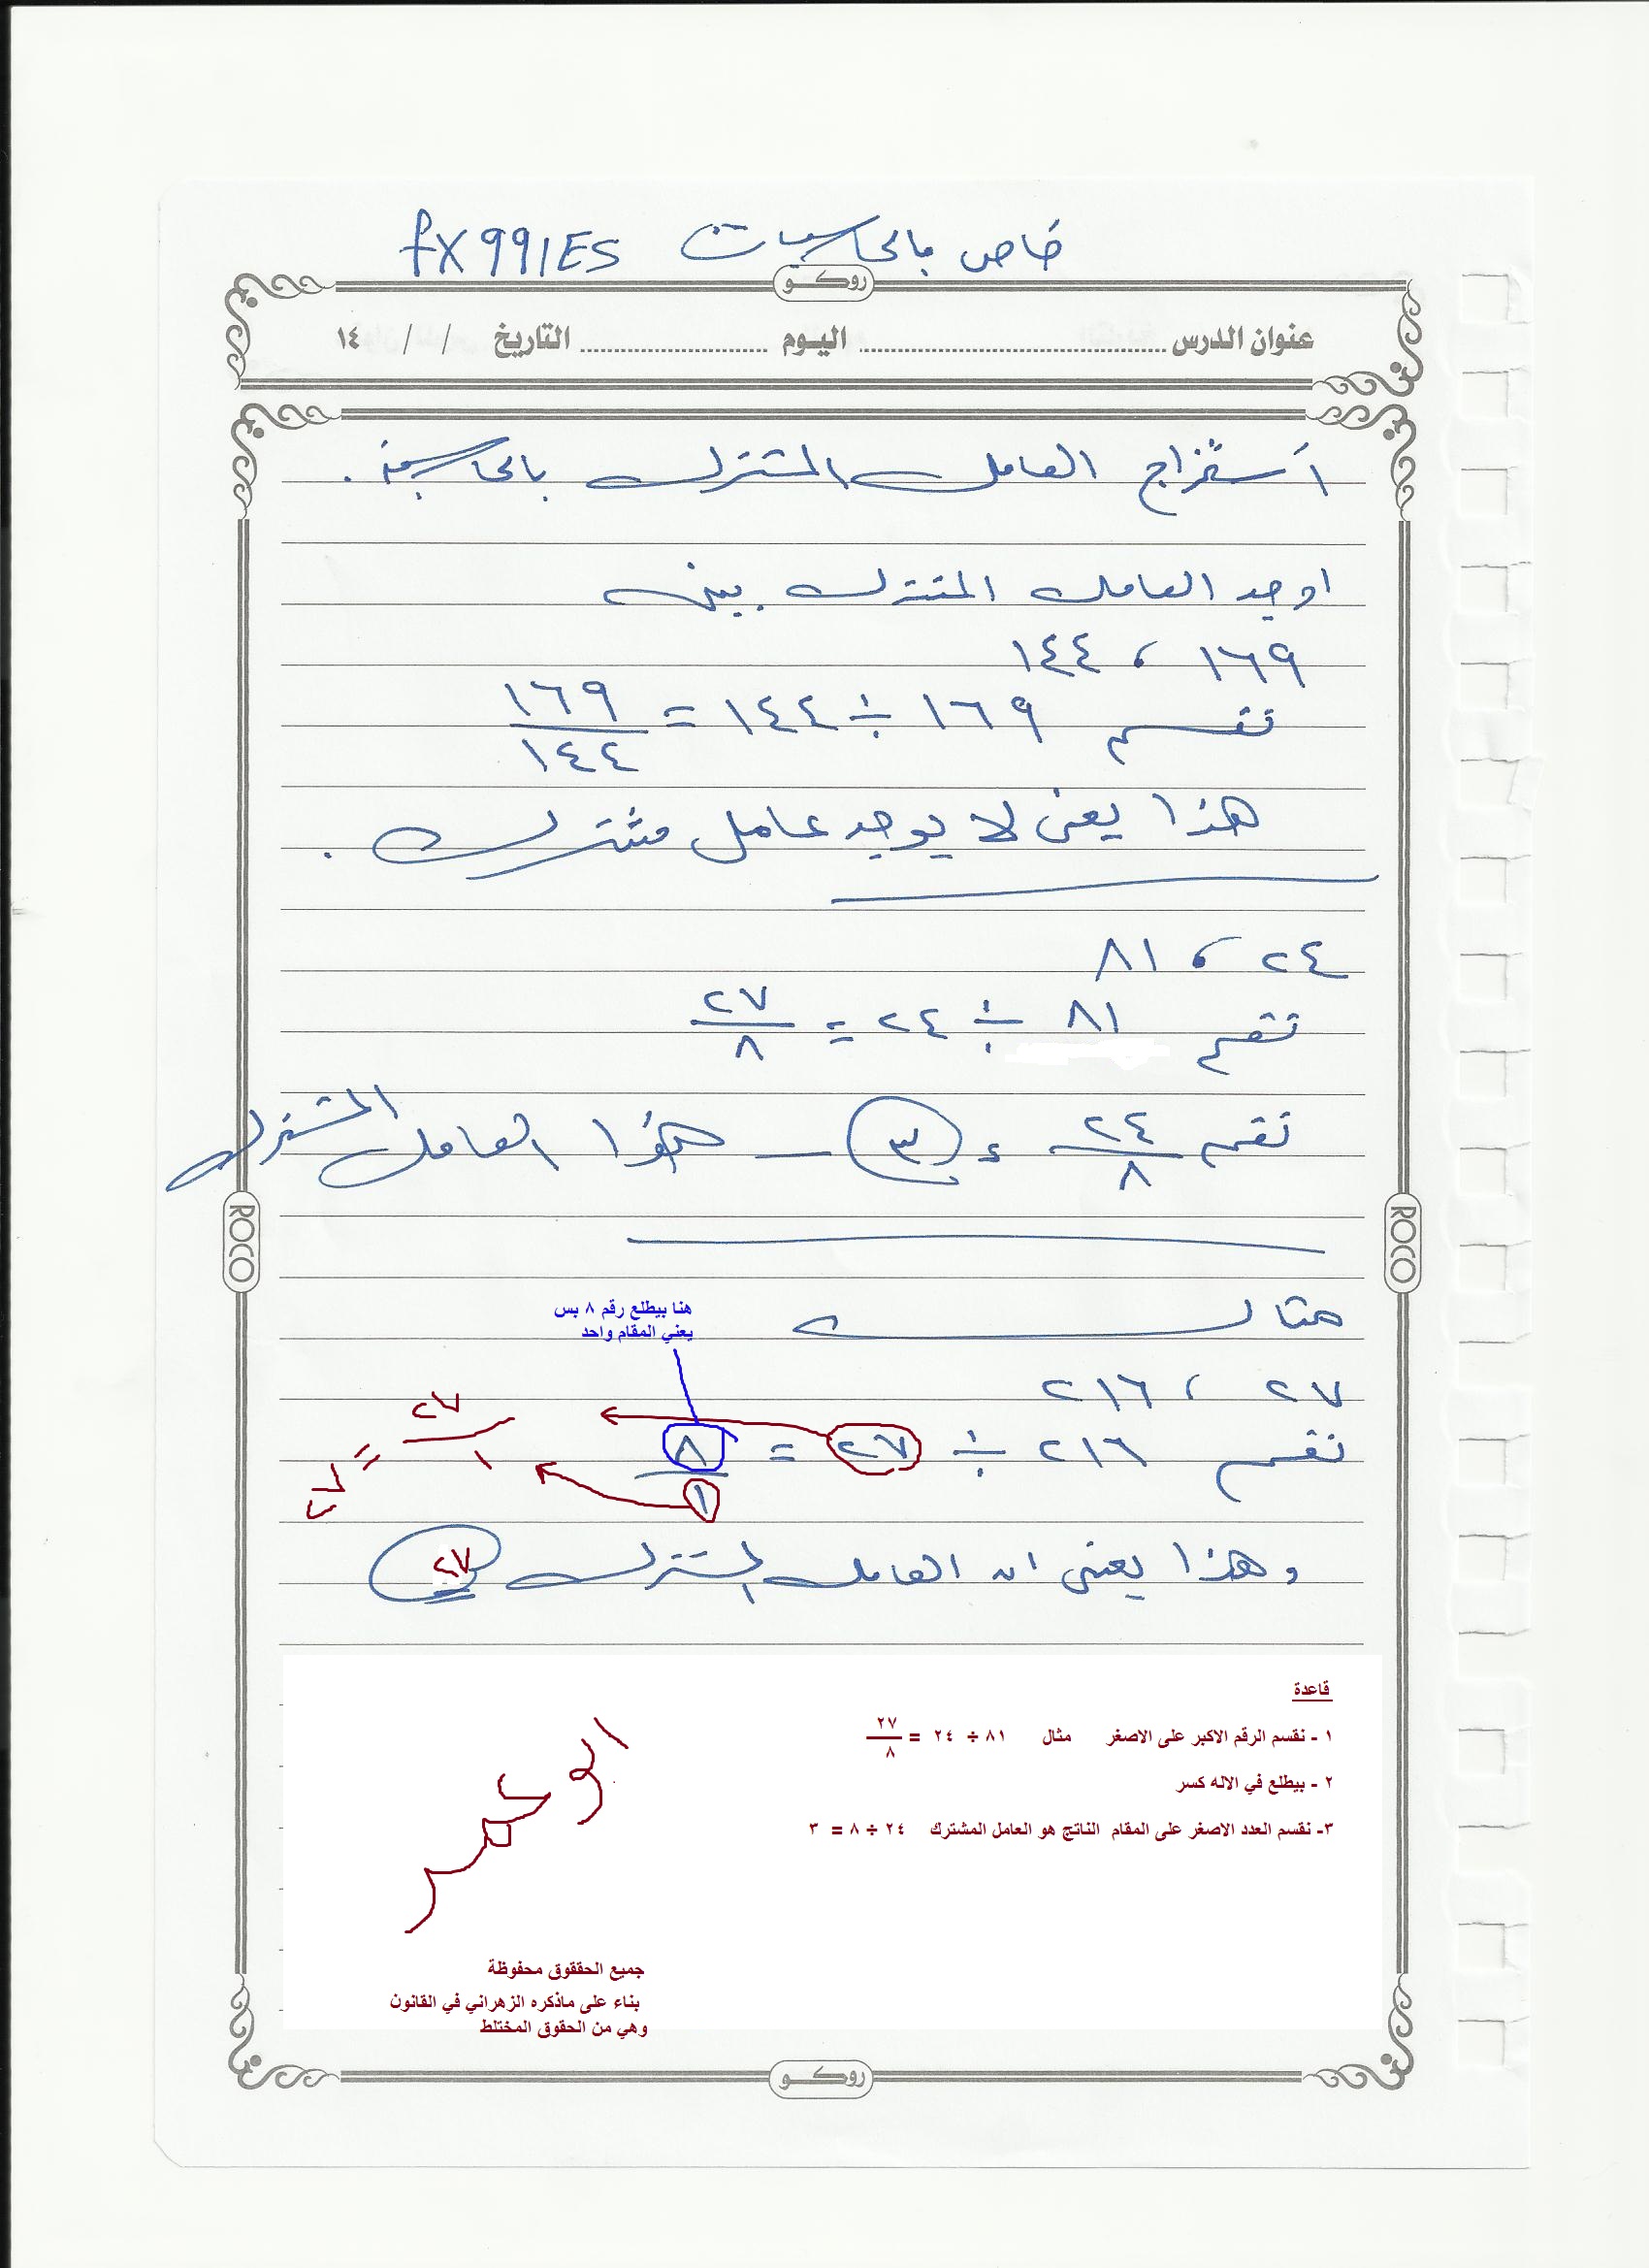 خاص بالحاسبات fx991ES
روكـو
عنوان الدرس ........................ اليوم ............ التاريخ / / ١٤
أستخراج العامل المشترك بالحاسبة .
اوجد العامل المشترك بين
١٦٩ ، ١٤٤
نقسم ١٦٩ ÷ ١٤٤ = ١٦٩/١٤٤
هذا يعني لا يوجد عامل مشترك .
٢٤ ، ٨١
نقسم ٨١ ÷ ٢٤ = ٢٧/٨
نقسم ٢٤/٨ = ٣ هذا العامل المشترك
ROCO
ROCO
هنا بيطلع رقم ٨ بس
يعني المقام واحد
مثال
٢٧ ، ٢١٦
نقسم ٢١٦ ÷ ٢٧ = ٨/١
٢٧/١ = ٢٧
وهذا يعني ان العامل المشترك ٢٧
قاعدة
١ - نقسم الرقم الاكبر على الاصغر مثال ٨١ ÷ ٢٤ = ٢٧/٨
٢ - بيطلع في الاله كسر
٣- نقسم العدد الاصغر على المقام الناتج هو العامل المشترك ٢٤ ÷ ٨ = ٣
جميع الحققوق محفوظة
بناء على ماذكره الزهراني في القانون
وهي من الحقوق المختلط
روكـو